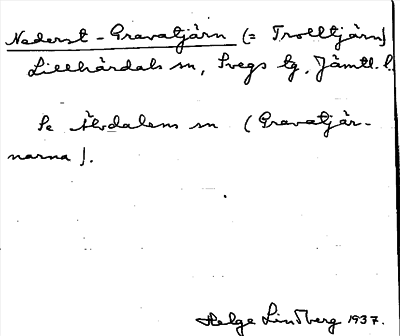 Nederst-Gravatjärn (= Trolltjärn)
Lillhärdals sn, Svegs tg, Jämtl. l.
Se Älvdalens sn (Gravatjär-
narna).
Helge Lindberg 1937.